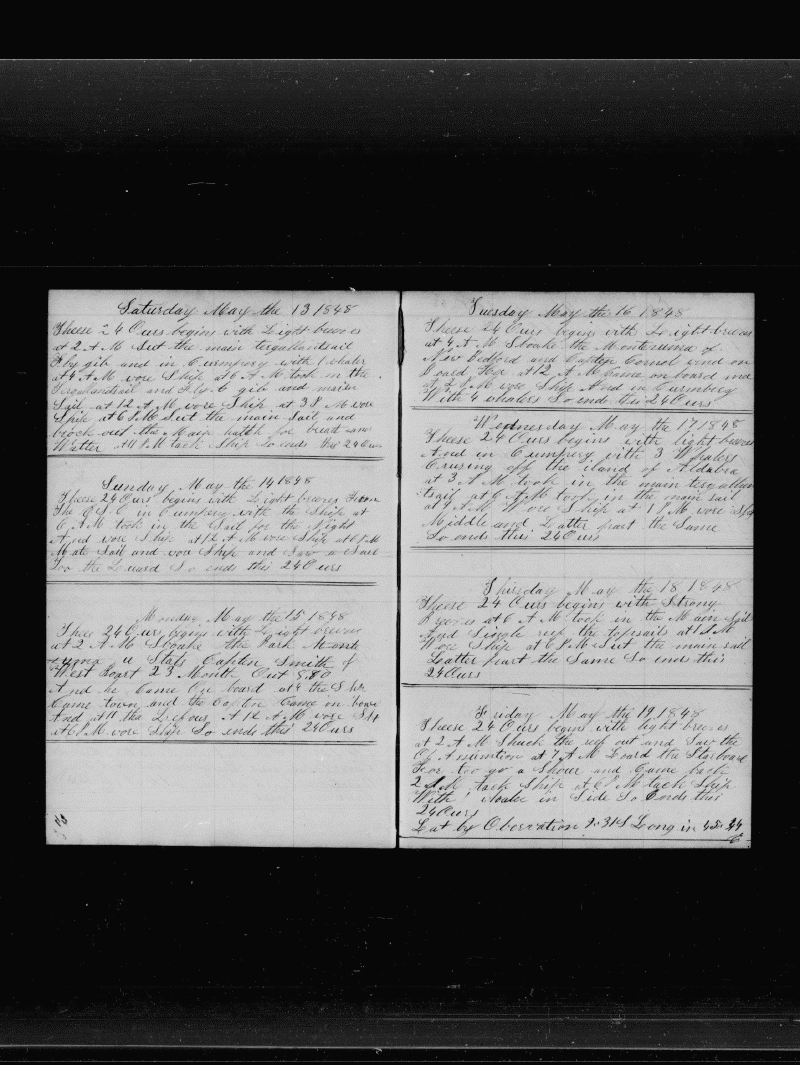 Saturday May the 13 1848
Theese 24 Ours begins with Light breeses
at 2 A M Set the main tergallandsail
Flygib and in Cumpery with 1 whaler
at 4 A M wore Ship at 6 A M took in the
Tergallandsail and Flyg gib and main
Sail at 12 A M wore Ship at 3 P M wore
Ship at 6 P M Set the main Sail and
brock out the Main hatch for bread and
Watter at 11 P M tack Ship So ends this 24 Ours
Sunday May the 14 1848
Theese 24 Ours begins with Light breeses from
The S E in Cumpery with the Ship at
6 A M took in the Sail for the Night
And wore Ship at 12 A M wore Ship at 6 P M
Mate Sail and wore Ship and Saw a Sail
Too the Leward So ends this 24 Ours
Monday May the 15 1848
Thees 24 Ours begins with Light breeses
at 2 A M Sboake the Bark Monte
Captin Smith of
West Poart 23 Month Out 580
And he Came On board at 4 the Ship
Came town and the Captin Came on board
And at 11 tha Left us A 12 A M wore Ship
At 6 P M wore Ship So ends this 24 Ours
Tuesday May the 16 1848
Theese 24 Ours begins with Light breeses
at 4 A M Sboake the Montesuma of
New Bedford and Captin Cornol wend on
board Her at 12 A M Came on board and
at 2 P M wore Ship And in Cumbery
With 4 whalers So ends this 24 Ours
Wednesday May the 17 1848
Theese 24 Ours begins with light breeses
And in Cumpery with 3 Whalers
Crusing off the iland of Aldabra
at 3 A M took in the main tergallan
tsail at 6 A M took in the main sail
at 9 A M Wore Ship at 1 P M wore Ship
Middle and Latter part the Same
So ends this 24 Ours
Thirsday May the 18 1848
Theese 24 Ours begins with Strong
Breeses at 6 A M took in the Main Sail
And Single reef the topsails at 1 P M
Wore Ship at 6 P M Set the main sail
Latter part the Same So ends this
24 Ours
Friday May the 19 1848
Theese 24 Ours begins with light breeses
at 2 A M Shuck the reef out and Saw the
Of Assumtion at 7 A M Loard the Starboard
For too go a Shoer and Came back
2 P M tack Ship at 6 P M tack Ship
With in Side So Ends this
24 Ours
Lat by Obervation 9:31 S Long in